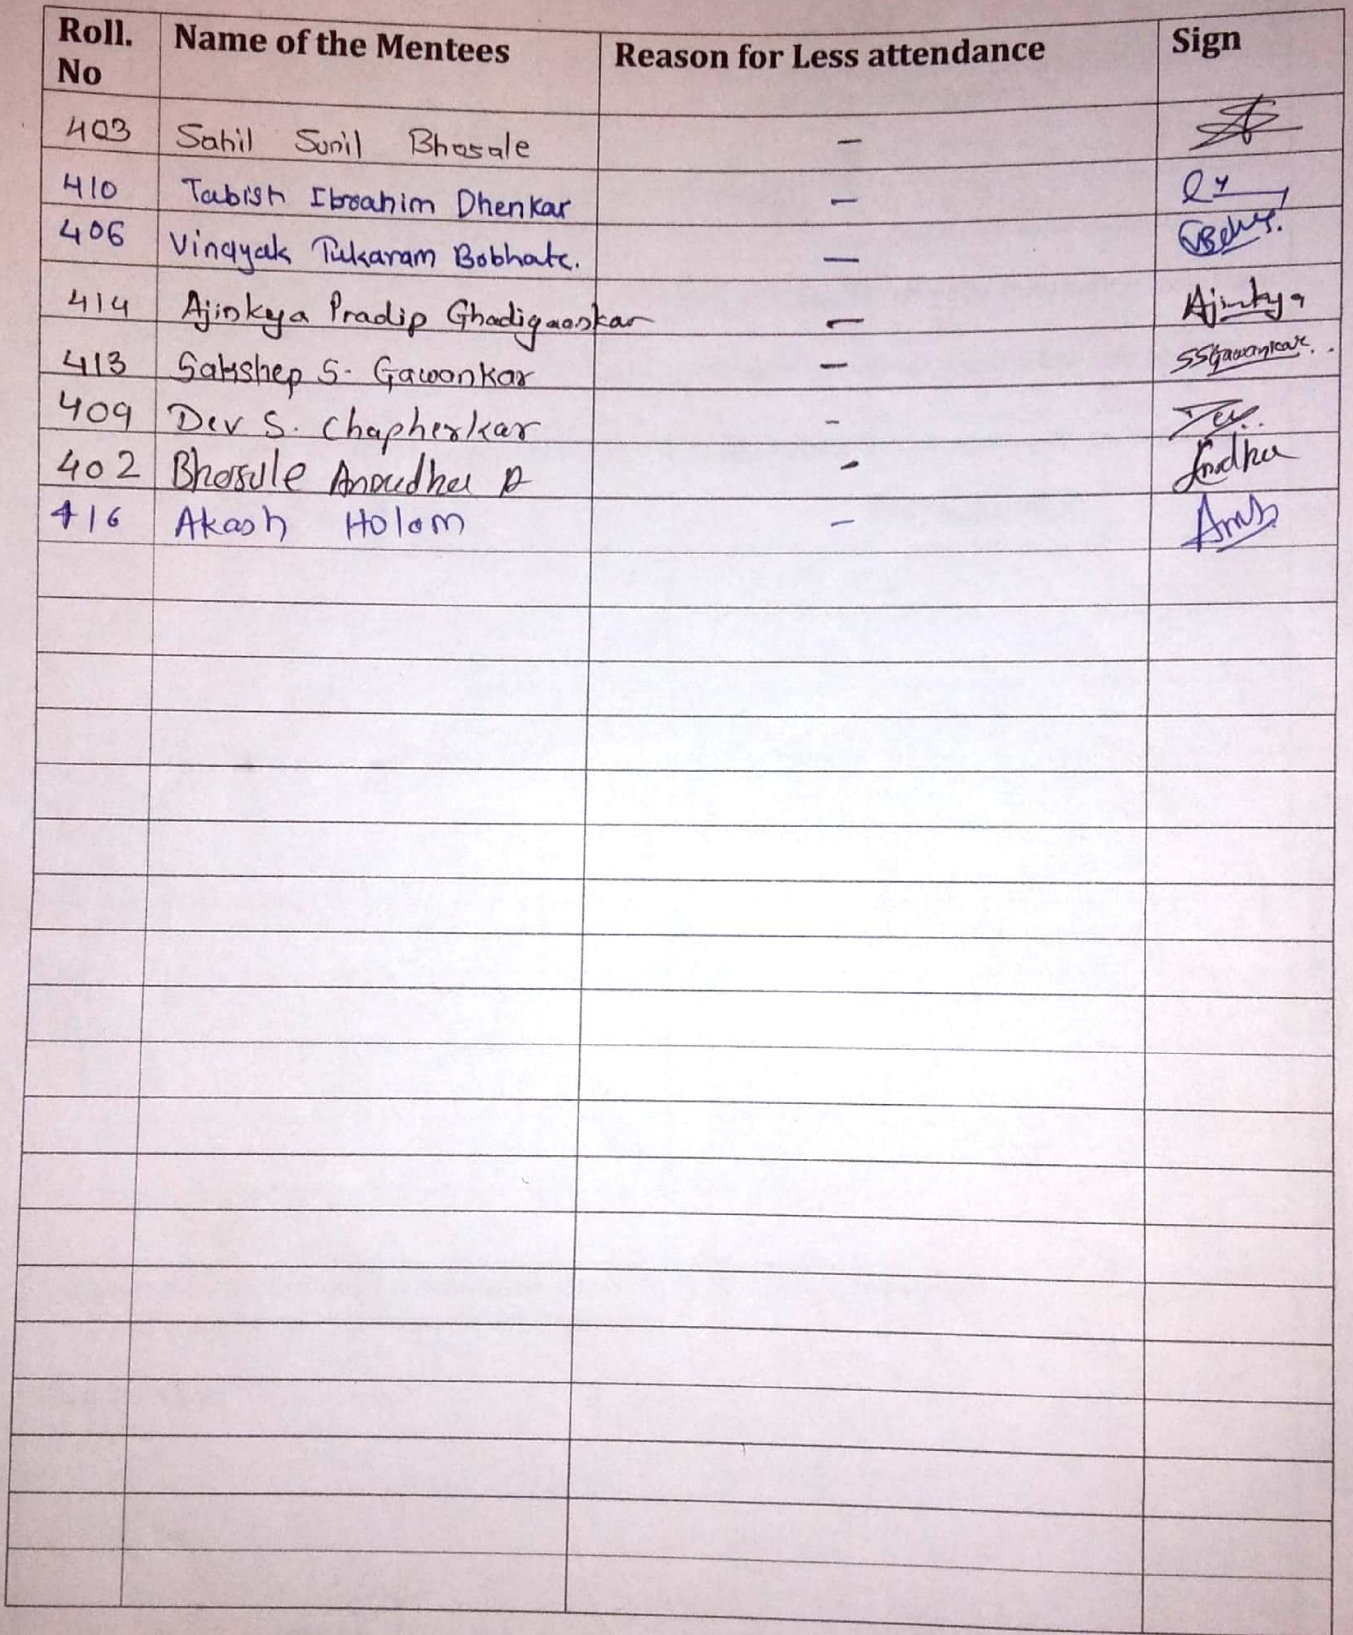 Roll. No Name of the Mentees Reason for Less attendance Sign
403 Sahil Sunil Bhosale -
410 Tabish Ibrahim Dhenkar -
406 Vinayak Tukaram Bobhate. -
414 Ajinkya Pradip Ghadigaonkar - Ajinkya
413 Sakshep S. Gawankar - SSGawankar..
409 Dev S. Chapherkar - Dev..
402 Bhosale -
416 Akash Holam -